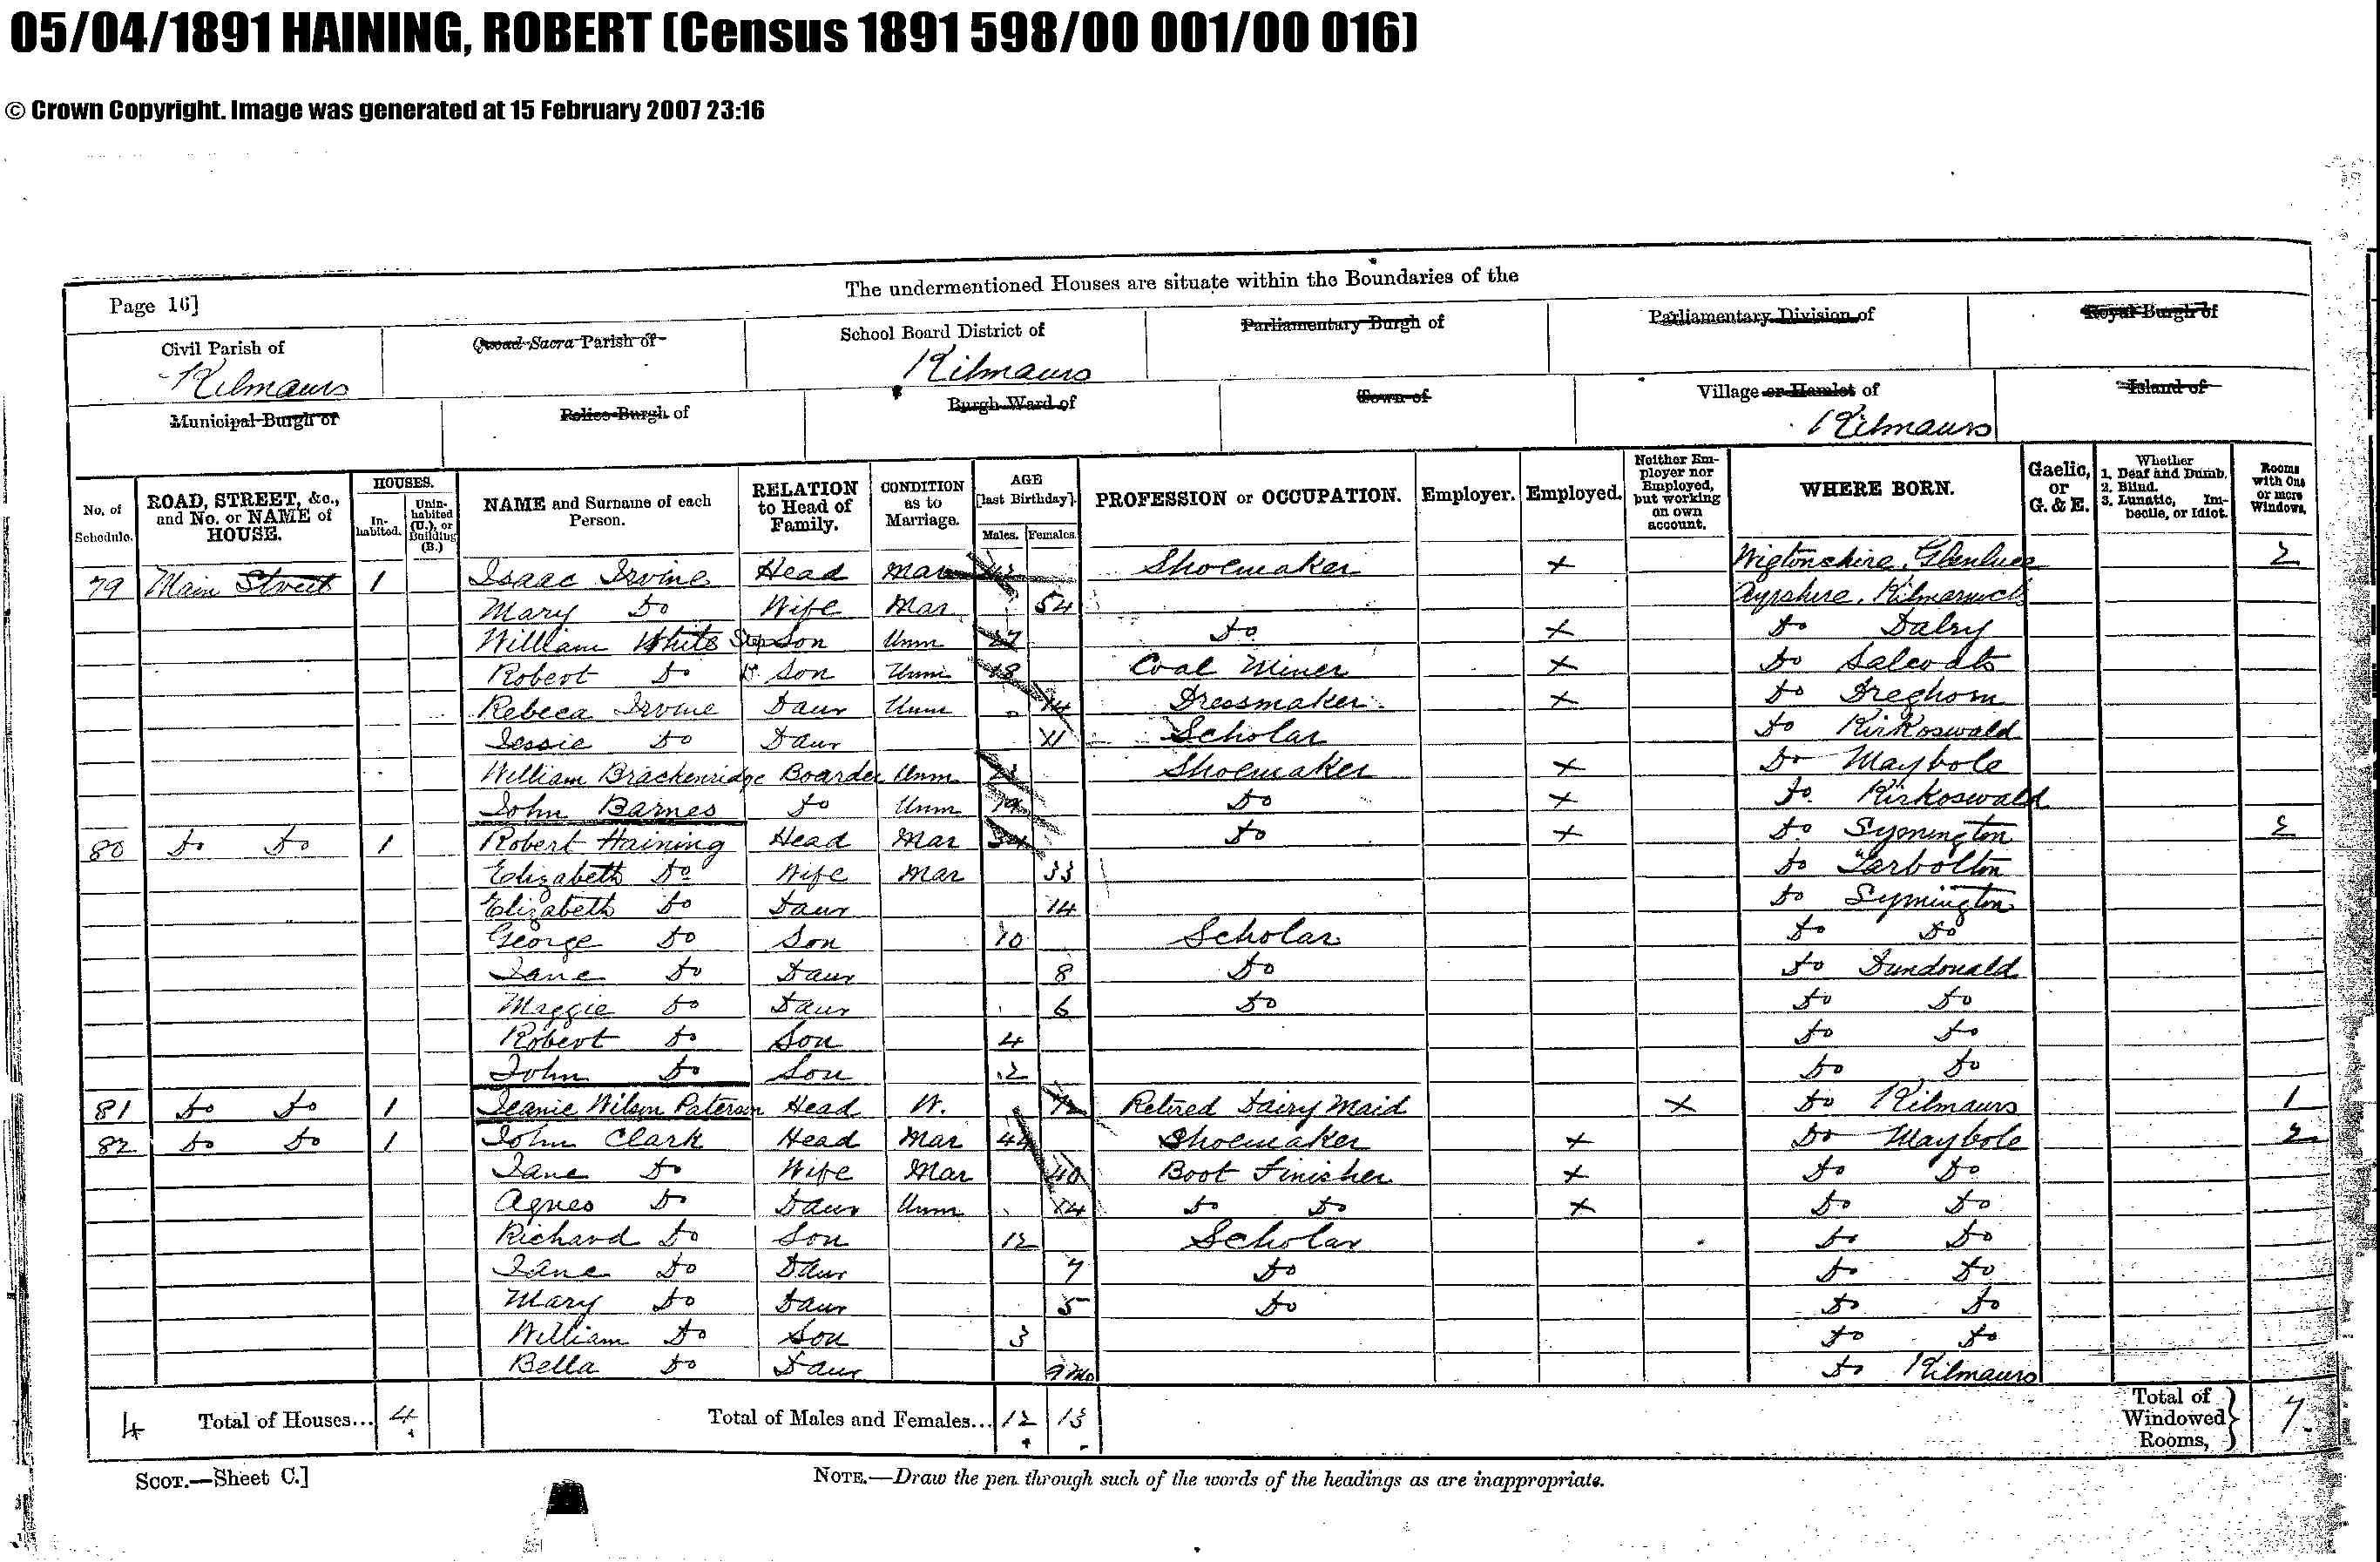 05/04/1891 HAINING, ROBERT (Census 1891 598/00 001/00 016)
© Crown Copyright. Image was generated at 15 February 2007 23:16
The undermentioned Houses are situate within the Boundaries of the
Page 16]
Civil Parish of Kilmaurs
Quoad Sacra Parish of
School Board District of Kilmaurs
Parliamentary Burgh of
Parliamentary Division of
Royal Burgh of
Municipal Burgh of
Police Burgh of
Burgh Ward of
Town of
Village or Hamlet of Kilmaurs
Island of
No. of Schedule.
ROAD, STREET, &c., and No. or NAME of HOUSE.
HOUSES.
Inhabited.
Uninhabited (U.), or Building (B.)
NAME and Surname of each Person.
RELATION to Head of Family.
CONDITION as to Marriage.
AGE [last Birthday].
Males. Females.
PROFESSION or OCCUPATION.
Employer.
Employed.
Neither Employer nor Employed, but working on own account.
WHERE BORN.
Gaelic, or G. & E.
Whether 1. Deaf and Dumb. 2. Blind. 3. Lunatic, Imbecile, or Idiot.
Rooms with One or more Windows.
79 Main Street 1 Isaac Irvine Head Mar Shoemaker x Wigtonshire, Glenluce 2
Mary Do Wife Mar 54 Ayrshire, Kilmarnock
William White Step Son Unm 27 Do x Do Dalry
Robert Do Do Son Unm 18 Coal Miner x Do Salcoats
Rebeca Irvine Daur Unm 14 Dressmaker x Do Dreghorn
Jessie Do Daur 11 Scholar Do Kirkoswald
William Brackenridge Boarder Unm Shoemaker x Do Maybole
John Barnes Do Unm 19 Do x Do Kirkoswald
80 Do Do 1 Robert Haining Head Mar 34 Do x Do Symington 2
Elizabeth Do Wife Mar 33 Do Tarbolton
Elizabeth Do Daur 14 Do Symington
George Do Son 10 Scholar Do Do
Jane Do Daur 8 Do Do Dundonald
Maggie Do Daur 6 Do Do Do
Robert Do Son 4 Do Do
John Do Son 2 Do Do
81 Do Do 1 Jeanie Wilson Paterson Head W. 72 Retired Dairy Maid x Do Kilmaurs 1
82 Do Do 1 John Clark Head Mar 44 Shoemaker x Do Maybole 2
Jane Do Wife Mar 40 Boot Finisher x Do Do
Agnes Do Daur Unm 14 Do Do x Do Do
Richard Do Son 12 Scholar Do Do
Jane Do Daur 7 Do Do Do
Mary Do Daur 5 Do Do Do
William Do Son 3 Do Do
Bella Do Daur 9 Mo Do Kilmaurs
4 Total of Houses... 4 Total of Males and Females... 12 13 Total of Windowed Rooms, 7
SCOT.—Sheet C.]
NOTE.—Draw the pen through such of the words of the headings as are inappropriate.